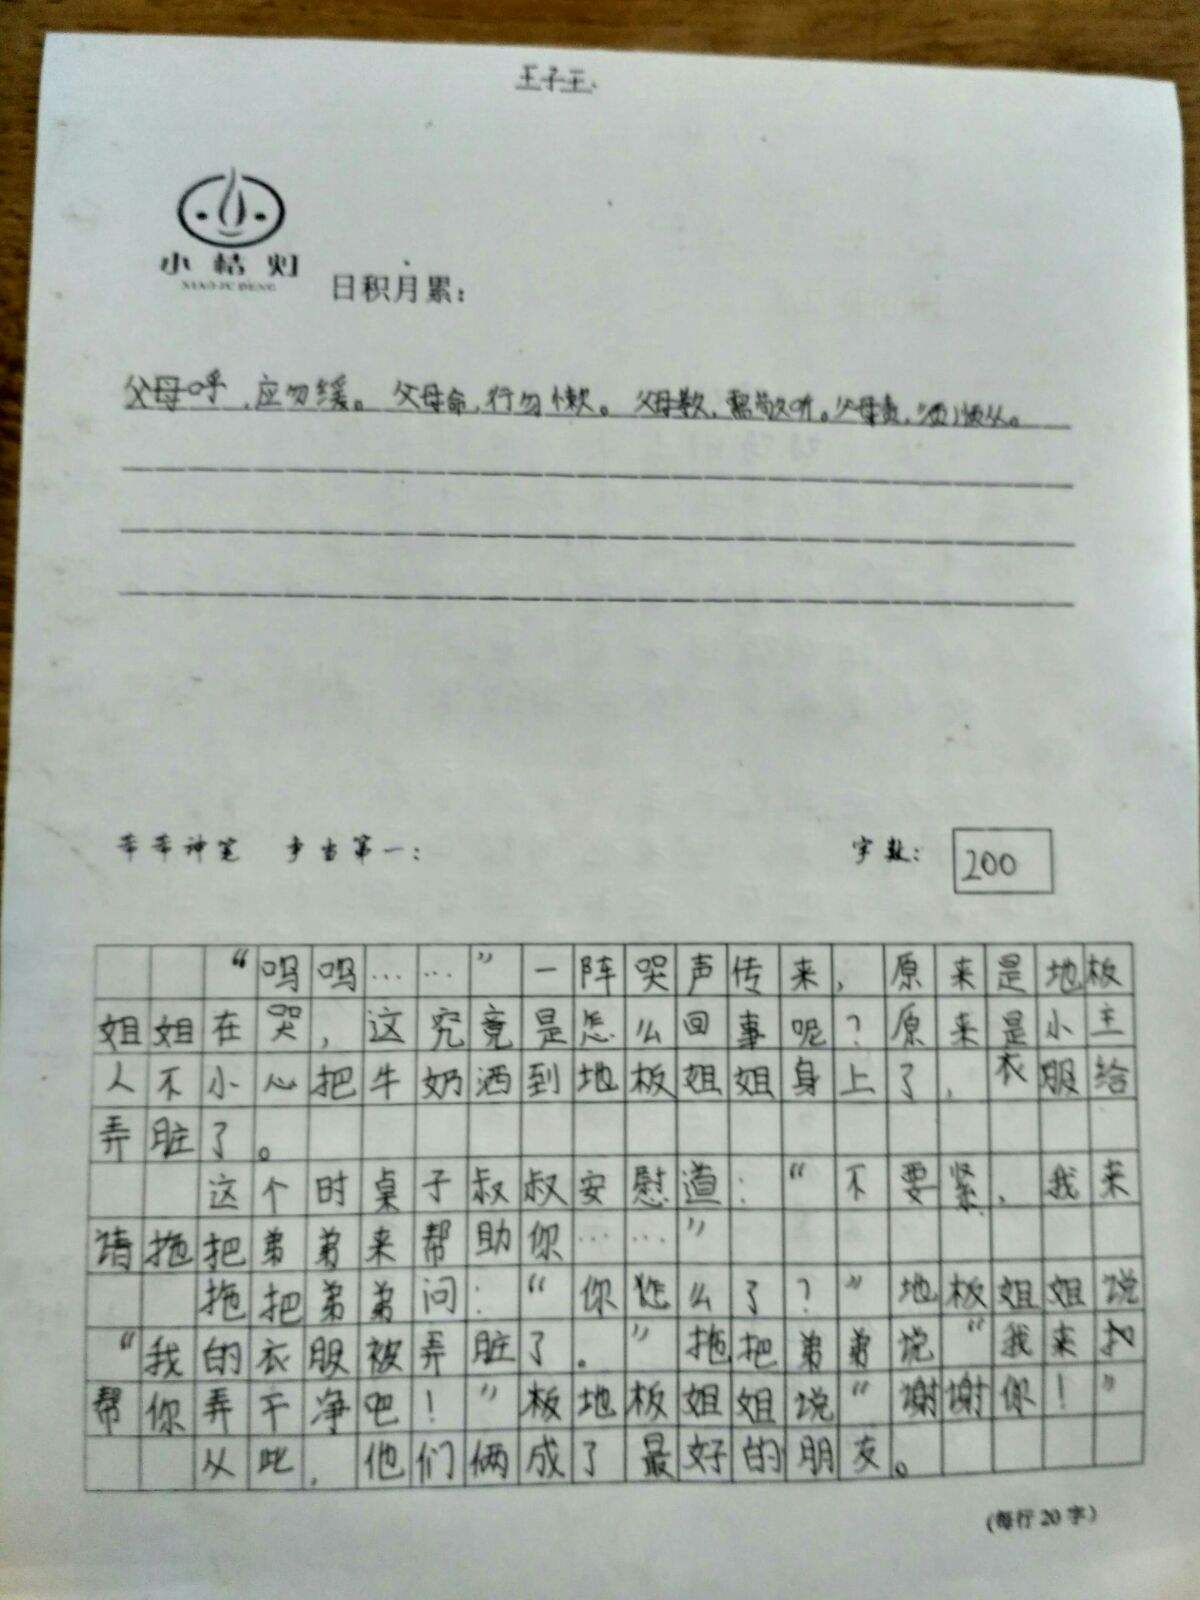 王子王.
小桔灯
XIAO JU DENG
日积月累:
父母呼,应勿缓。父母命,行勿懒。父母教,需敬听。父母责,须顺从。
乖乖神笔 争当第一:
字数:
200
“呜呜……”一阵哭声传来,原来是地板
姐姐在哭,这究竟是怎么回事呢?原来是小主
人不小心把牛奶洒到地板姐姐身上了,衣服给
弄脏了。
这个时桌子叔叔安慰道:“不要紧,我来
请拖把弟弟来帮助你……”
拖把弟弟问:“你怎么了?”地板姐姐说
“我的衣服被弄脏了。”拖把弟弟说“我来
帮你弄干净吧!”板地板姐姐说“谢谢你!”
从此,他们俩成了最好的朋友。
(每行20字)